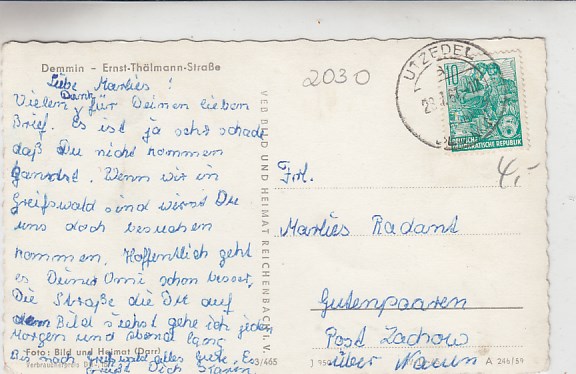 Demmin – Ernst-Thälmann-Straße
Liebe Marlies!
Vielen Dank für Deinen lieben
Brief. Es ist ja sehr schade
daß Du nicht kommen
kannst. Wenn wir in
Greifswald sind wirst Du
uns doch besuchen
kommen. Hoffentlich geht
es Deiner Omi schon besser.
Die Straße die Du auf
dem Bild siehst gehe ich jeden
Morgen und Abend lang.
Bis nach Greifswald alles Gute. Es
grüßt Dich
Foto: Bild und Heimat (Darr)
Verbraucherpreis
VEB BILD UND HEIMAT REICHENBACH I. V.
2030
UTZEDEL
10
DEUTSCHE
DEMOKRATISCHE REPUBLIK
4,-
Frl.
Marlies Radant
Gutenpaaren
Post Zachow
über Nauen
A 246/59